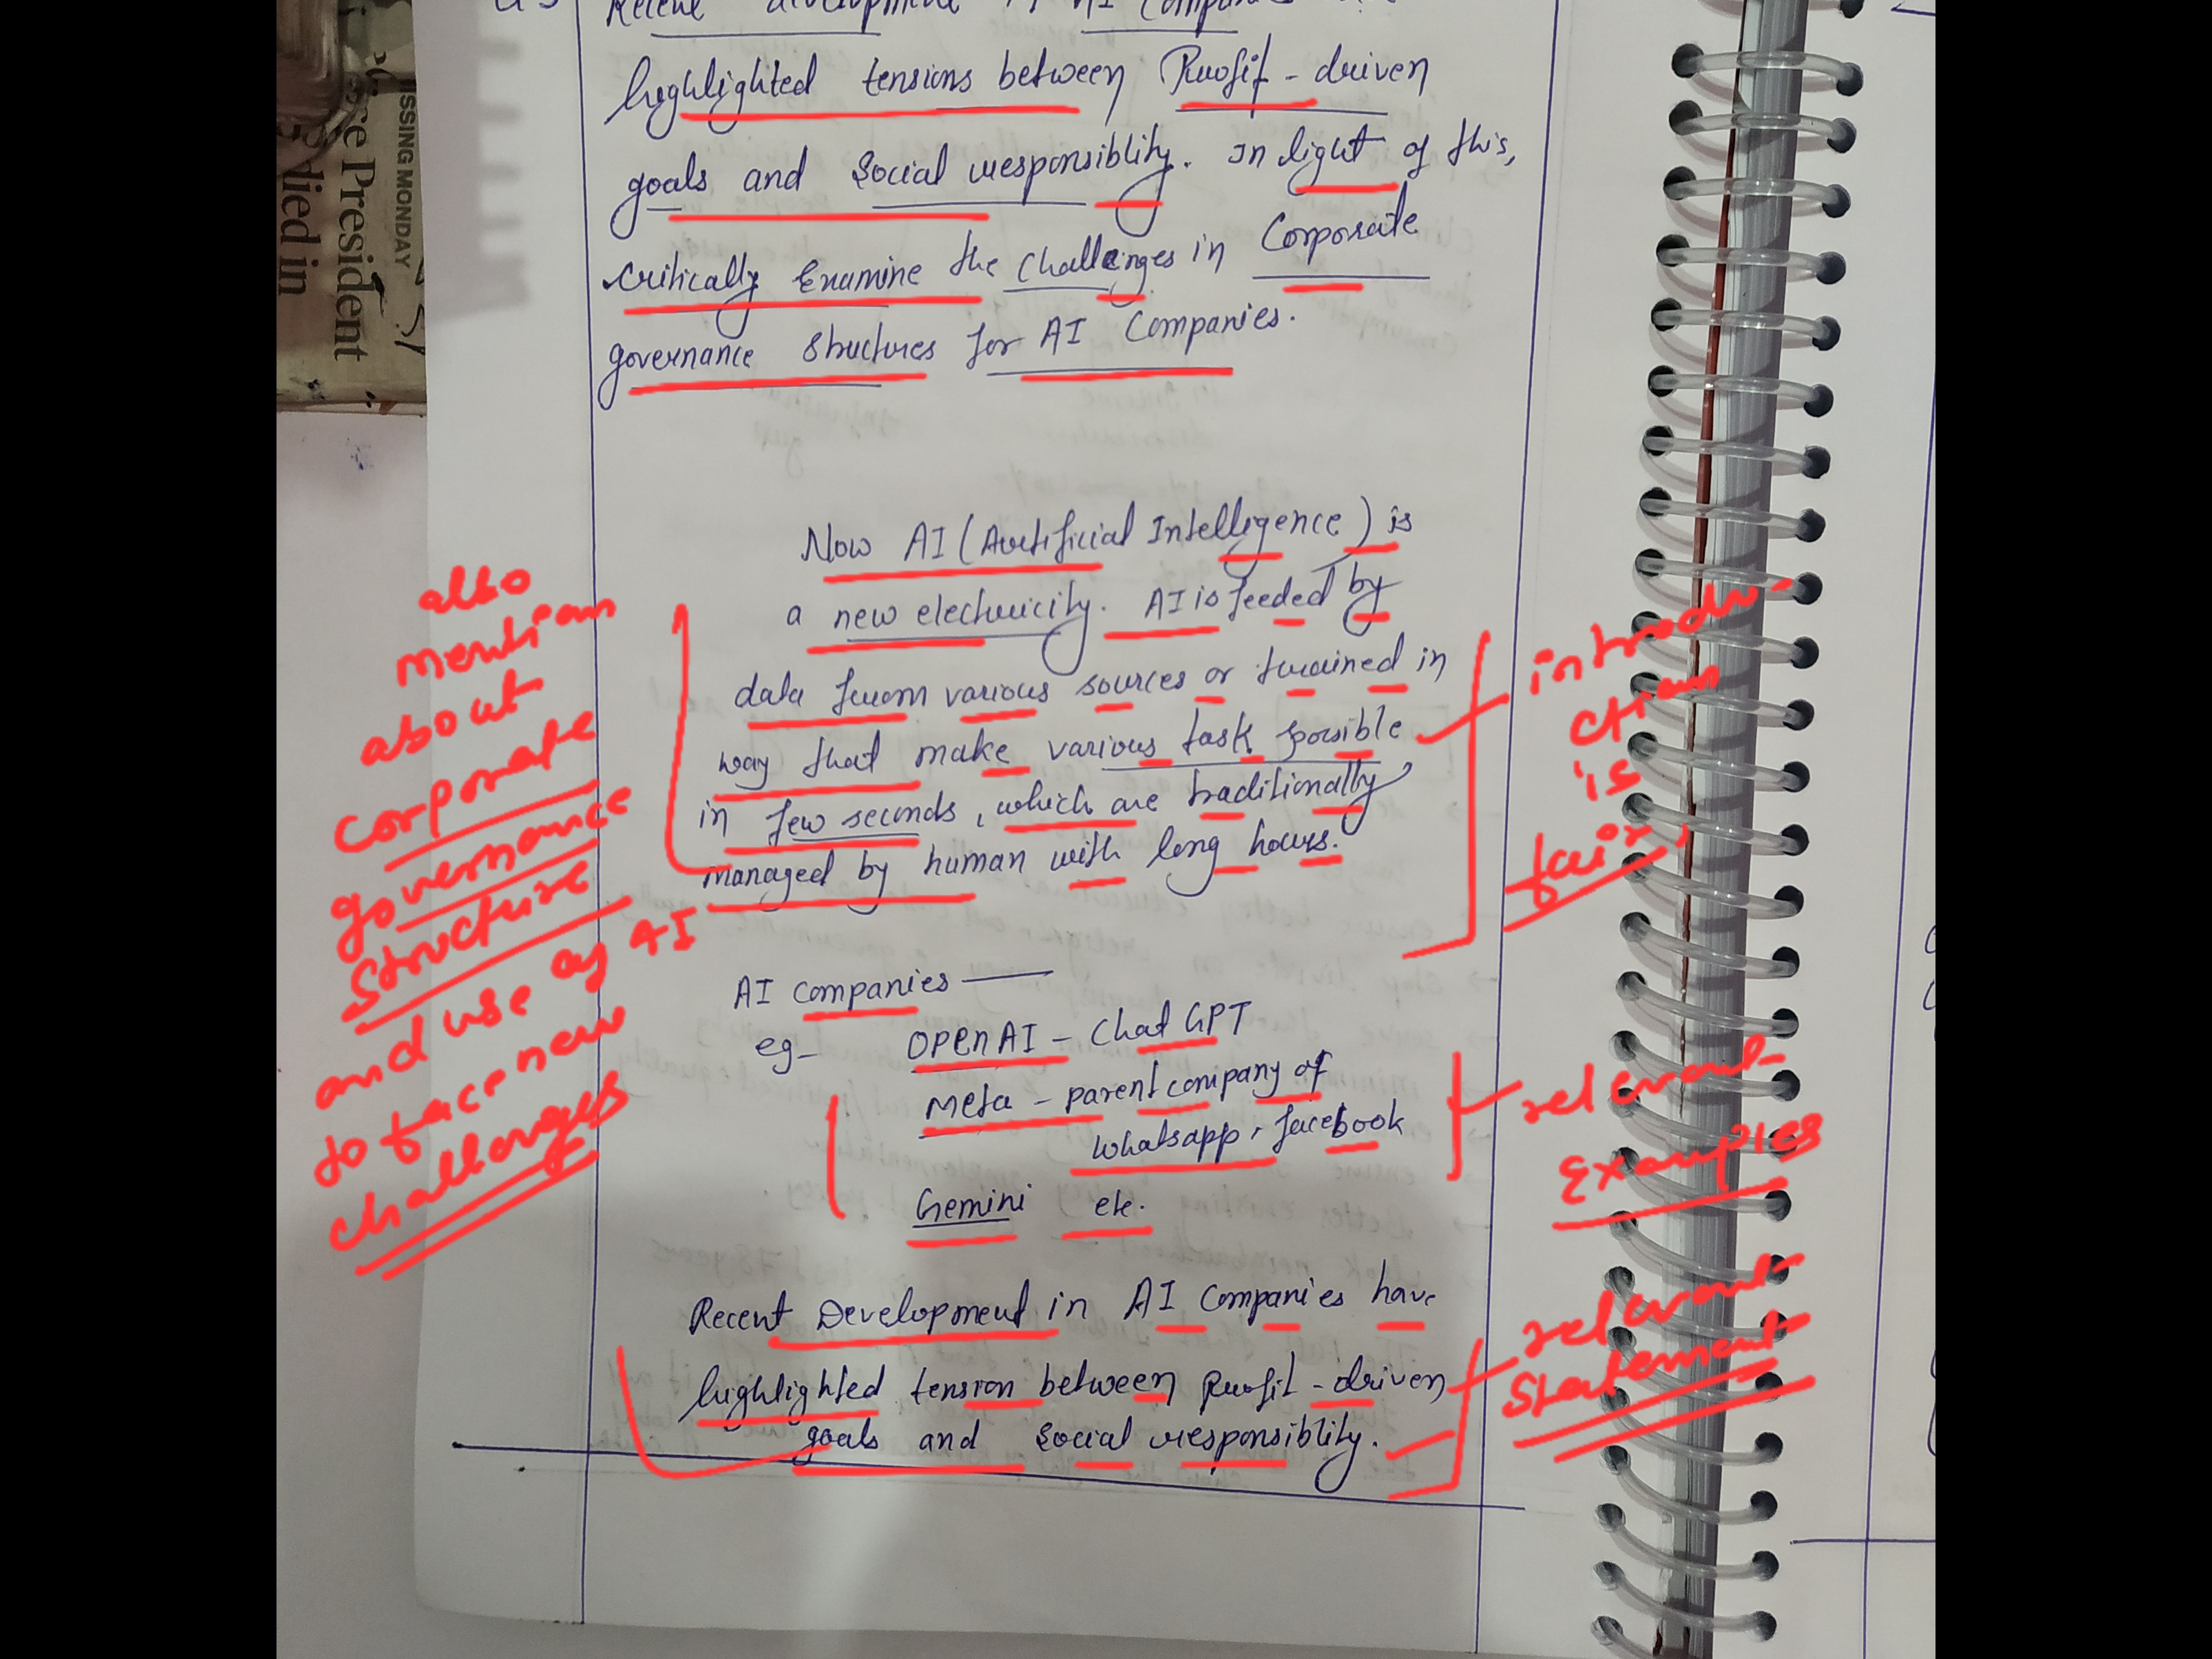 Recent development in AI Companies
highlighted tensions between Profit - driven
goals and Social responsiblity. In light of this,
critically Examine the challenges in Corporate
governance structures for AI Companies.
Now AI (Artificial Intelligence) is
a new electricity. AI is feeded by
data from various sources or trained in
way that make various task possible
in few seconds, which are traditionally
managed by human with long hours.
introdu-
ction
is
fair,
also
mention
about
corporate
governance
structure
and use of AI
to face new
challenges
AI companies —
eg- OPENAI - Chat GPT
Meta - parent company of
whatsapp, facebook
Gemini etc.
relevant
Examples
Recent Development in AI Companies have
highlighted tension between Profit - driven
goals and social responsiblity.
relevant
statement
ISSING MONDAY
President
lied in